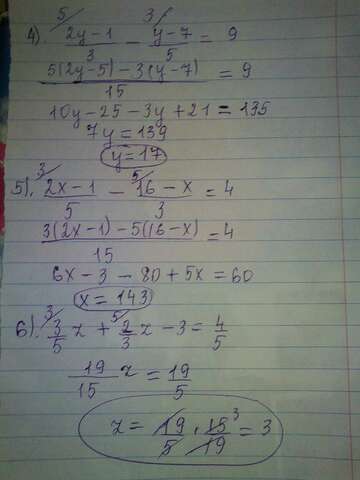 4). 5/ (2y-1)/3 - 3/ (y-7)/5 = 9
(5(2y-5) - 3(y-7))/15 = 9
10y - 25 - 3y + 21 = 135
7y = 139
y = 17
5). 3/ (2x-1)/5 - 5/ (16-x)/3 = 4
(3(2x-1) - 5(16-x))/15 = 4
6x - 3 - 80 + 5x = 60
x = 143
6). 3/ 3/5 z + 5/ 2/3 z - 3 = 4/5
19/15 z = 19/5
z = 19/5 · 15/19 3 = 3